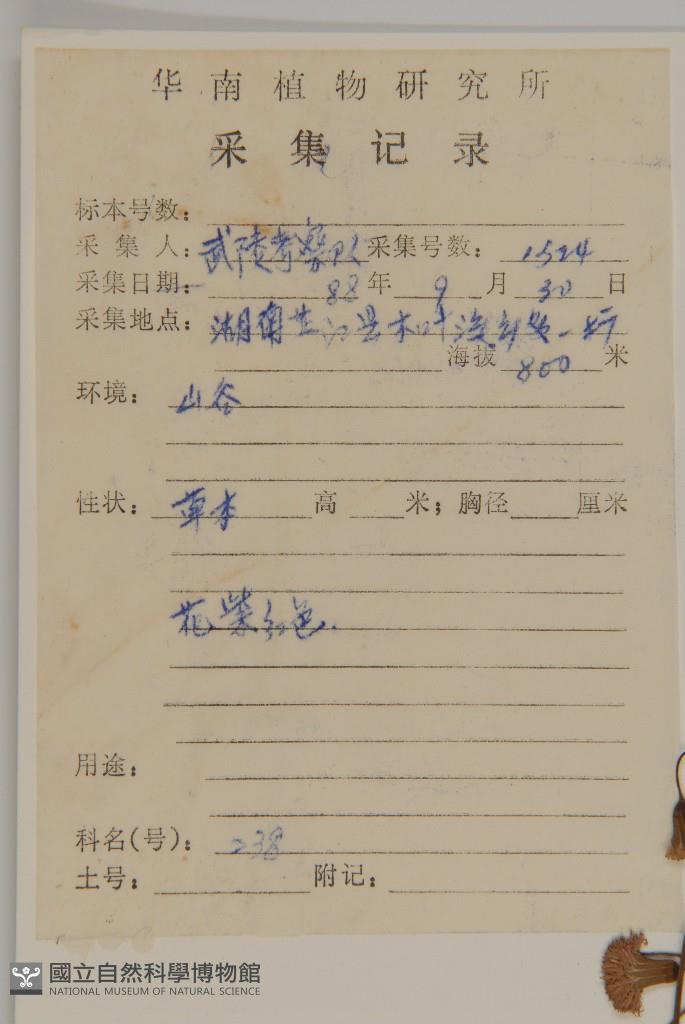 华南植物研究所
采集记录
标本号数:
采集人: 武陵考察队 采集号数: 1524
采集日期: 88年 9月 30日
采集地点: 湖南芷江县木叶溪
海拔 800 米
环境: 山谷
性状: 草本 高 米; 胸径 厘米
花紫红色.
用途:
科名(号): 238
土号: 附记:
國立自然科學博物館
NATIONAL MUSEUM OF NATURAL SCIENCE